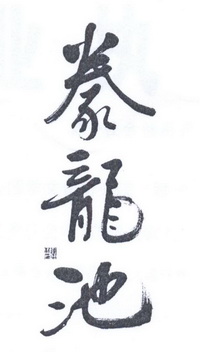 豢龍池